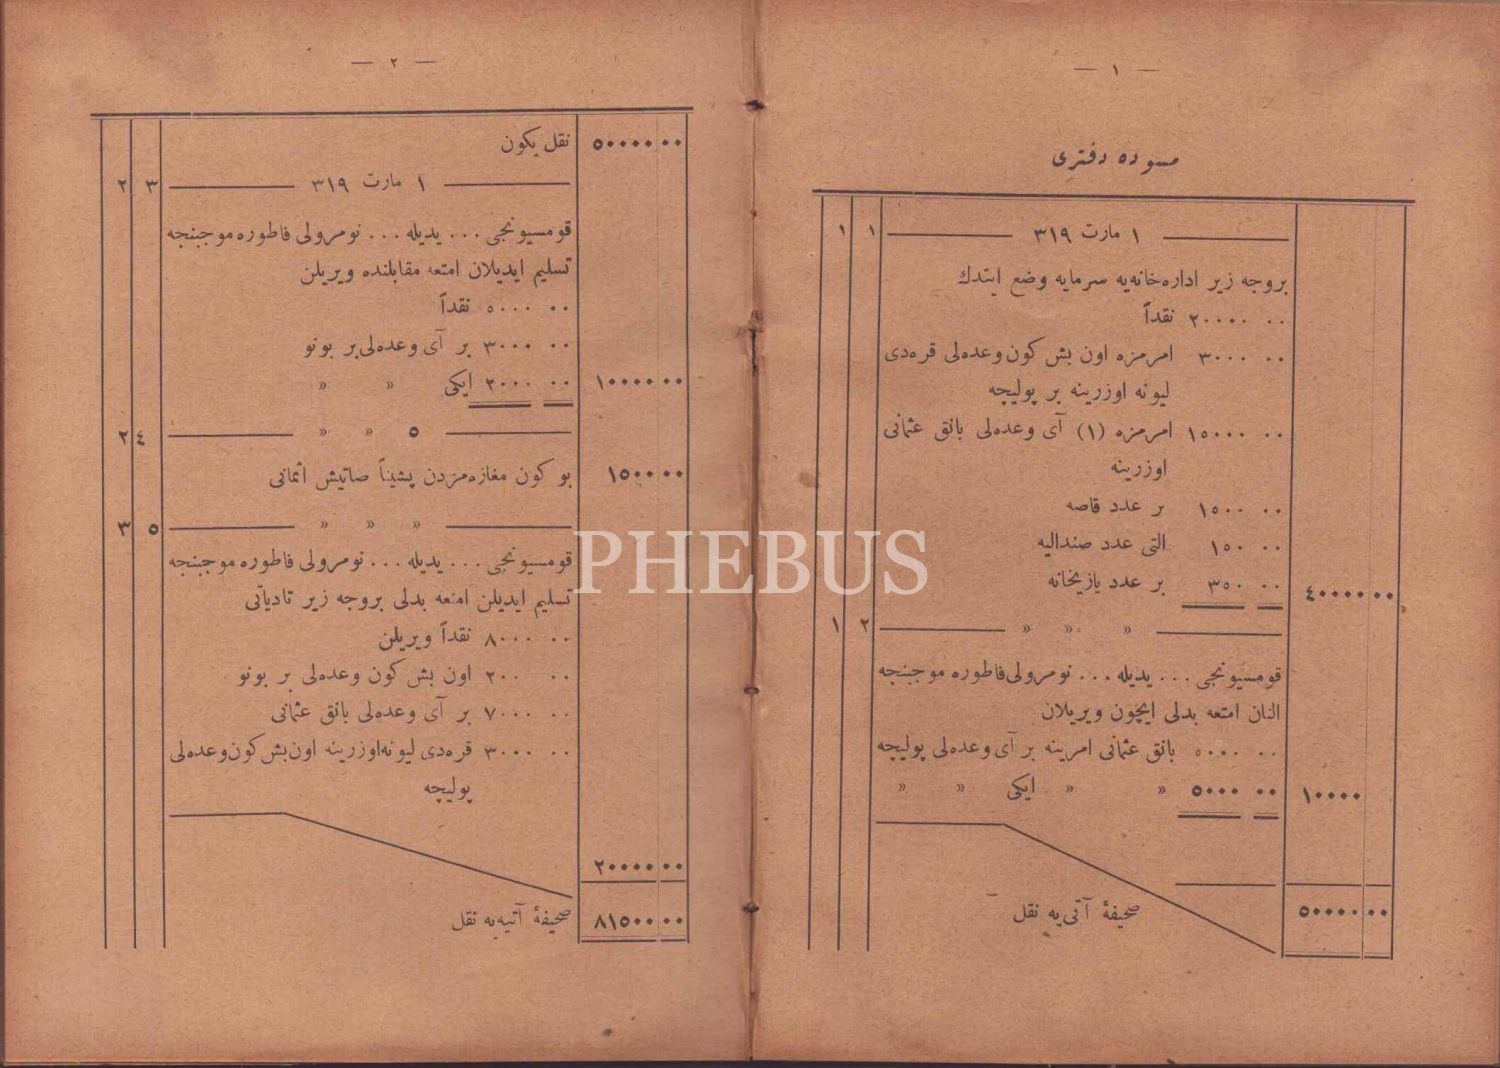 — ١ —
مسوده دفتری
١ ١ ١ مارت ٣١٩
بروجه زیر اداره‌خانه‌یه سرمایه وضع ایتدك
٢٠٠٠٠ ٠٠ نقداً
٣٠٠٠ ٠٠ امرمزه اون بش كون وعده‌لی قره‌دی
لیونه اوزرینه بر پولیچه
١٥٠٠٠ ٠٠ امرمزه (١) آی وعده‌لی بانق عثمانی
اوزرینه
١٥٠٠ ٠٠ بر عدد قاصه
١٥٠ ٠٠ التی عدد صندالیه
٣٥٠ ٠٠ بر عدد یازیخانه
٤٠٠٠٠ ٠٠
١ ٢ » » »
قومسیونجی ... یدیله ... نومرولی فاطوره موجبنجه
النان امتعه بدلی ایچون ویریلان
٥٠٠٠ ٠٠ بانق عثمانی امرینه بر آی وعده‌لی پولیچه
٥٠٠٠ ٠٠ » » ایكی » »
١٠٠٠٠
صحیفهٔ آتی یه نقل
٥٠٠٠٠ ٠٠
— ٢ —
نقل یكون ٥٠٠٠٠ ٠٠
٢ ٣ ١ مارت ٣١٩
قومسیونجی ... یدیله ... نومرولی فاطوره موجبنجه
تسلیم ایدیلان امتعه مقابلنده ویریلن
٥٠٠٠ ٠٠ نقداً
٣٠٠٠ ٠٠ بر آی وعده‌لی بر بونو
٢٠٠٠ ٠٠ ایكی » »
١٠٠٠٠ ٠٠
٢ ٤ ٥ » »
بو كون مغازه‌مزدن پشیناً صاتیش اثمانی ١٥٠٠ ٠٠
٣ ٥ » » »
قومسیونجی ... یدیله ... نومرولی فاطوره موجبنجه
تسلیم ایدیلن امتعه بدلی بروجه زیر تادیاتی
٨٠٠٠ ٠٠ نقداً ویریلن
٢٠٠ ٠٠ اون بش كون وعده‌لی بر بونو
٧٠٠٠ ٠٠ بر آی وعده‌لی بانق عثمانی
٣٠٠٠ ٠٠ قره‌دی لیونه اوزرینه اون بش كون وعده‌لی
پولیچه
٢٠٠٠٠ ٠٠
صحیفهٔ آتیه یه نقل ٨١٥٠٠ ٠٠
PHEBUS